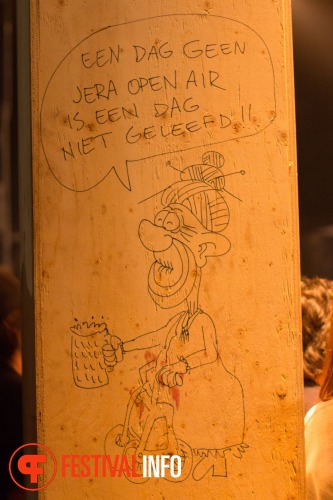 EEN DAG GEEN
JERA OPEN AIR
IS EEN DAG
NIET GELEEFD!!
FESTIVALINFO